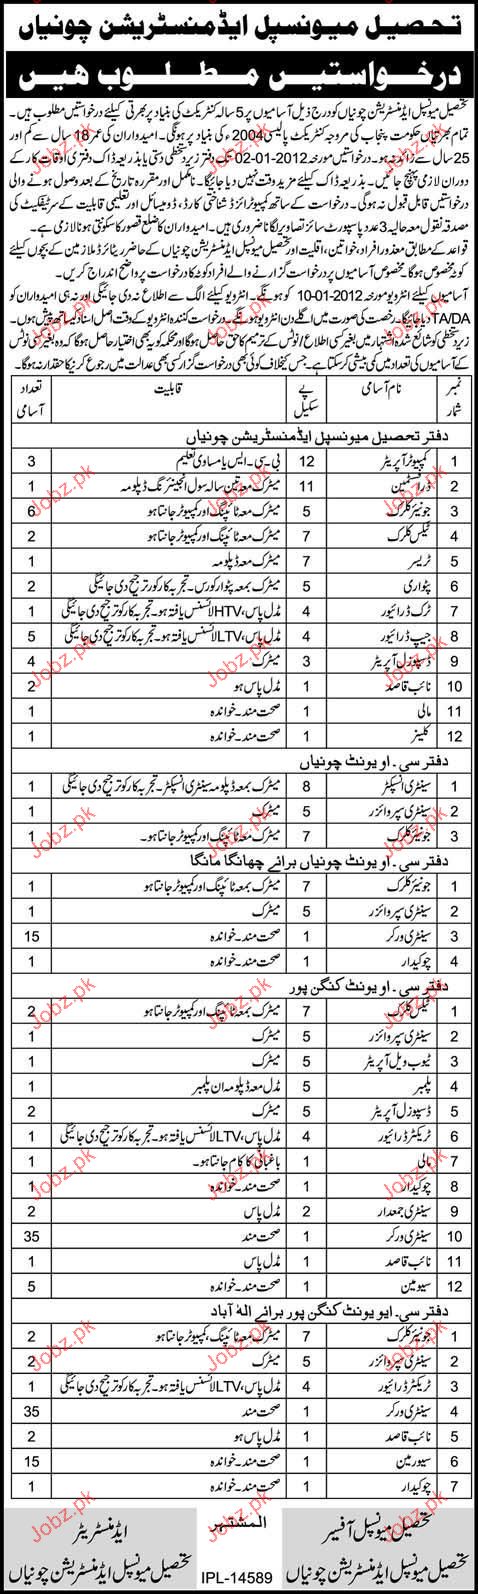 تحصیل میونسپل ایڈمنسٹریشن چونیاں
درخواستیں مطلوب ھیں
تحصیل میونسپل ایڈمنسٹریشن چونیاں کو درج ذیل آسامیوں پر 5 سالہ کنٹریکٹ کی بنیاد پر بھرتی کیلئے درخواستیں مطلوب ہیں۔
تمام بھرتیاں حکومت پنجاب کی مروجہ کنٹریکٹ پالیسی 2004 کی بنیاد پر ہونگی۔ امیدواران کی عمر 18 سال سے کم اور
25 سال سے زائد نہ ہو۔ درخواستیں مورخہ 02-01-2012 تک دفتر زیر دستخطی دستی یا بذریعہ ڈاک دفتری اوقات کار کے
دوران لازمی پہنچ جائیں۔ بذریعہ ڈاک کیلئے مزید وقت نہیں دیا جائیگا۔ نامکمل اور مقررہ تاریخ کے بعد وصول ہونے والی
درخواستیں قابل قبول نہ ہوگی۔ درخواست کے ساتھ کمپیوٹرائزڈ شناختی کارڈ، ڈومیسائل اور تعلیمی قابلیت کے سرٹیفکیٹ کی
مصدقہ نقول معہ حالیہ 3 عدد پاسپورٹ سائز تصاویر لگانا ضروری ہیں۔ امیدواران کا ضلع قصور کا سکونتی ہونا لازمی ہے۔
قواعد کے مطابق معذور افراد، خواتین، اقلیت اور تحصیل میونسپل ایڈمنسٹریشن چونیاں کے حاضر ریٹائرڈ ملازمین کے بچوں کیلئے
کوٹہ مخصوص ہوگا۔ مخصوص آسامیوں پر درخواست گزارنے والے افراد کوٹہ کا درخواست پر واضح اندراج کریں۔
آسامیوں کیلئے انٹرویو مورخہ 10-01-2012 کو ہونگے۔ انٹرویو کیلئے الگ سے اطلاع نہ دی جائیگی اور نہ ہی امیدواران کو
TA/DA دیا جائیگا۔ رخصت کی صورت میں اگلے دن انٹرویو ہونگے۔ درخواست کنندہ انٹرویو کے وقت اصل اسناد ساتھ پیش ہوں۔
زیر دستخطی کو شائع شدہ اشتہار میں بغیر کسی اطلاع / نوٹس کے ترمیم کا حق حاصل ہوگا اور محکمہ کو یہ بھی اختیار حاصل ہوگا کہ وہ بغیر کسی نوٹس
کے آسامیوں کی تعداد میں کمی بیشی کر سکتا ہے۔ جس کیخلاف کوئی بھی درخواست گزار کسی بھی عدالت میں رجوع کرنیکا حقدار نہ ہوگا۔
نمبر شمار نام آسامی پے سکیل قابلیت تعداد آسامی
دفتر تحصیل میونسپل ایڈمنسٹریشن چونیاں
1 کمپیوٹر آپریٹر 12 بی۔سی۔ایس یا مساوی تعلیم 3
2 ڈرافٹسمین 11 میٹرک معہ تین سالہ سول انجینئرنگ ڈپلومہ 1
3 جونیئر کلرک 7 میٹرک معہ ٹائپنگ اور کمپیوٹر جانتا ہو 6
4 ٹیکس کلرک 7 میٹرک معہ ٹائپنگ اور کمپیوٹر جانتا ہو 2
5 ٹریسر 7 میٹرک معہ ڈپلومہ 1
6 پٹواری 5 میٹرک بمعہ پٹوار کورس۔ تجربہ کار کو ترجیح دی جائیگی 2
7 ٹرک ڈرائیور 4 مڈل پاس، HTV لائسنس یافتہ ہو۔ تجربہ کار کو ترجیح دی جائیگی 1
8 جیپ ڈرائیور 4 مڈل پاس، LTV لائسنس یافتہ ہو۔ تجربہ کار کو ترجیح دی جائیگی 5
9 ڈسپوزل آپریٹر 3 میٹرک 4
10 نائب قاصد 1 مڈل پاس ہو 2
11 مالی 1 صحت مند۔ خواندہ 1
12 کلینر 1 صحت مند۔ خواندہ 1
دفتر سی۔ او یونٹ چونیاں
1 سینٹری انسپکٹر 8 میٹرک بمعہ ڈپلومہ سینٹری انسپکٹر۔ تجربہ کار کو ترجیح دی جائیگی 1
2 سینٹری سپروائزر 5 میٹرک 1
3 جونیئر کلرک 7 میٹرک معہ ٹائپنگ اور کمپیوٹر جانتا ہو۔ 1
دفتر سی۔ او یونٹ چونیاں برائے چھانگا مانگا
1 جونیئر کلرک 7 میٹرک بمعہ ٹائپنگ اور کمپیوٹر جانتا ہو 1
2 سینٹری سپروائزر 5 میٹرک 1
3 سینٹری ورکر 1 صحت مند۔ خواندہ 15
4 چوکیدار 1 صحت مند۔ خواندہ 1
دفتر سی۔ او یونٹ کنگن پور
1 ٹیکس کلرک 7 میٹرک بمعہ ٹائپنگ اور کمپیوٹر جانتا ہو 2
2 سینٹری سپروائزر 5 میٹرک 1
3 ٹیوب ویل آپریٹر 5 میٹرک 1
4 پلمبر 5 مڈل معہ ڈپلومہ ان پلمبر 1
5 ڈسپوزل آپریٹر 5 میٹرک 2
6 ٹریکٹر ڈرائیور 4 مڈل پاس، LTV لائسنس یافتہ ہو۔ تجربہ کار کو ترجیح دی جائیگی 1
7 مالی 1 باغبانی کا کام جانتا ہو۔ 1
8 چوکیدار 1 صحت مند۔ خواندہ 1
9 سینٹری جمعدار 2 مڈل پاس 2
10 سینٹری ورکر 1 صحت مند 35
11 نائب قاصد 1 مڈل پاس 1
12 سیورمین 1 صحت مند۔ خواندہ 5
دفتر سی۔ ایو یونٹ کنگن پور برائے الہ آباد
1 جونیئر کلرک 7 میٹرک معہ ٹائپنگ، کمپیوٹر جانتا ہو 2
2 سینٹری سپروائزر 5 میٹرک 2
3 ٹریکٹر ڈرائیور 4 مڈل پاس، LTV لائسنس یافتہ ہو۔ تجربہ کار کو ترجیح دی جائیگی 1
4 سینٹری ورکر 1 صحت مند 35
5 نائب قاصد 1 مڈل پاس ہو 2
6 سیورمین 1 صحت مند۔ خواندہ 15
7 چوکیدار 1 صحت مند۔ خواندہ 1
تحصیل میونسپل آفیسر
تحصیل میونسپل ایڈمنسٹریشن چونیاں
المشتہر
IPL-14589
ایڈمنسٹریٹر
تحصیل میونسپل ایڈمنسٹریشن چونیاں
Jobz.pk